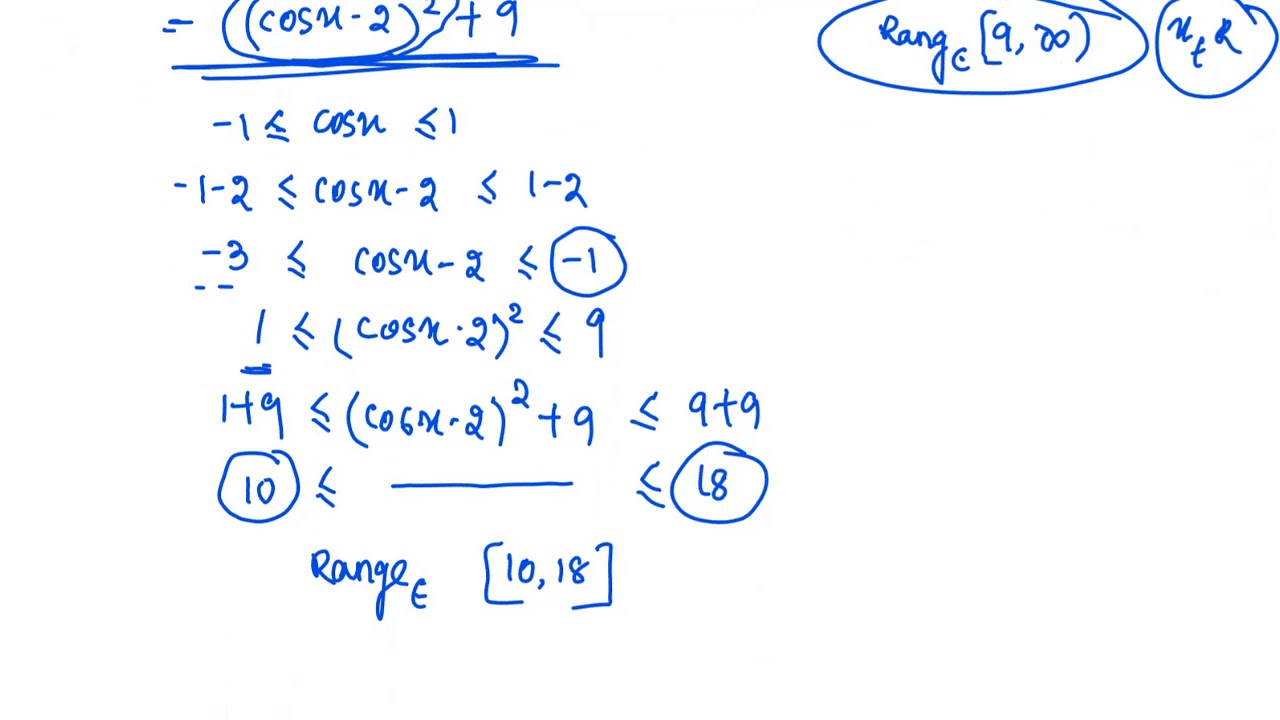 = ((cosx - 2)²) + 9
Range ∈ [9, ∞) x ∈ R
-1 ≤ cosx ≤ 1
-1-2 ≤ cosx - 2 ≤ 1-2
-3 ≤ cosx - 2 ≤ -1
1 ≤ (cosx - 2)² ≤ 9
1+9 ≤ (cosx - 2)² + 9 ≤ 9+9
10 ≤ ——— ≤ 18
Range ∈ [10, 18]